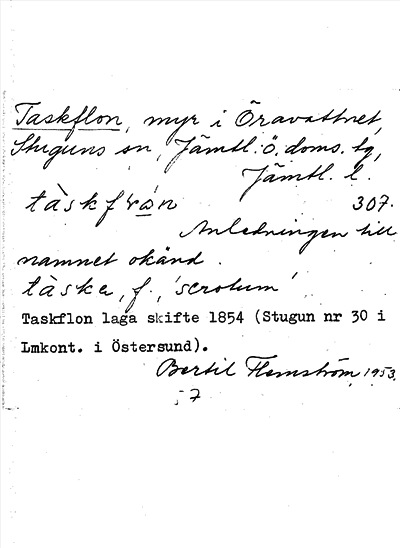 Taskflon, myr i Öravattnet,
Stuguns sn, Jämtl. ö. doms. tg,
Jämtl. l.
tàskfrɷn 307.
Anledningen till
namnet okänd.
tàska, f., 'scrotum'
Taskflon laga skifte 1854 (Stugun nr 30 i
Lmkont. i Östersund).
Bertil Flemström, 1953.
7